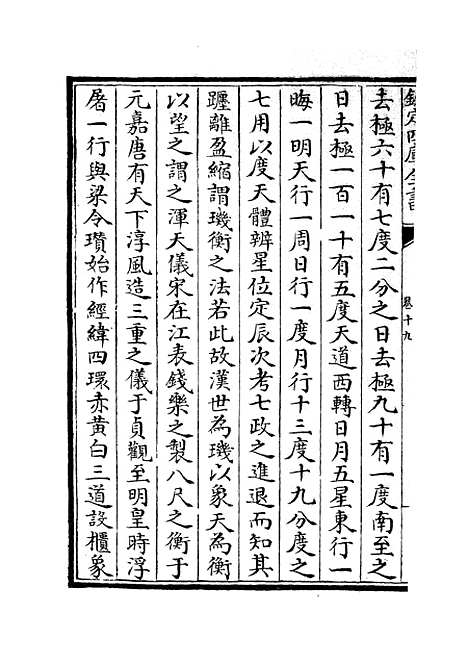 欽定四庫全書
卷十九
去極六十有七度二分之日去極九十有一度南至之
日去極一百一十有五度天道西轉日月五星東行一
晦一明天行一周日行一度月行十三度十九分度之
七用以度天體辨星位定辰次考七政之進退而知其
躔離盈縮謂璣衡之法若此故漢世為璣以象天為衡
以望之謂之渾天儀宋在江表錢樂之製八尺之衡于
元嘉唐有天下淳風造三重之儀于貞觀至明皇時浮
屠一行與梁令瓚始作經緯四環赤黃白三道設櫃象